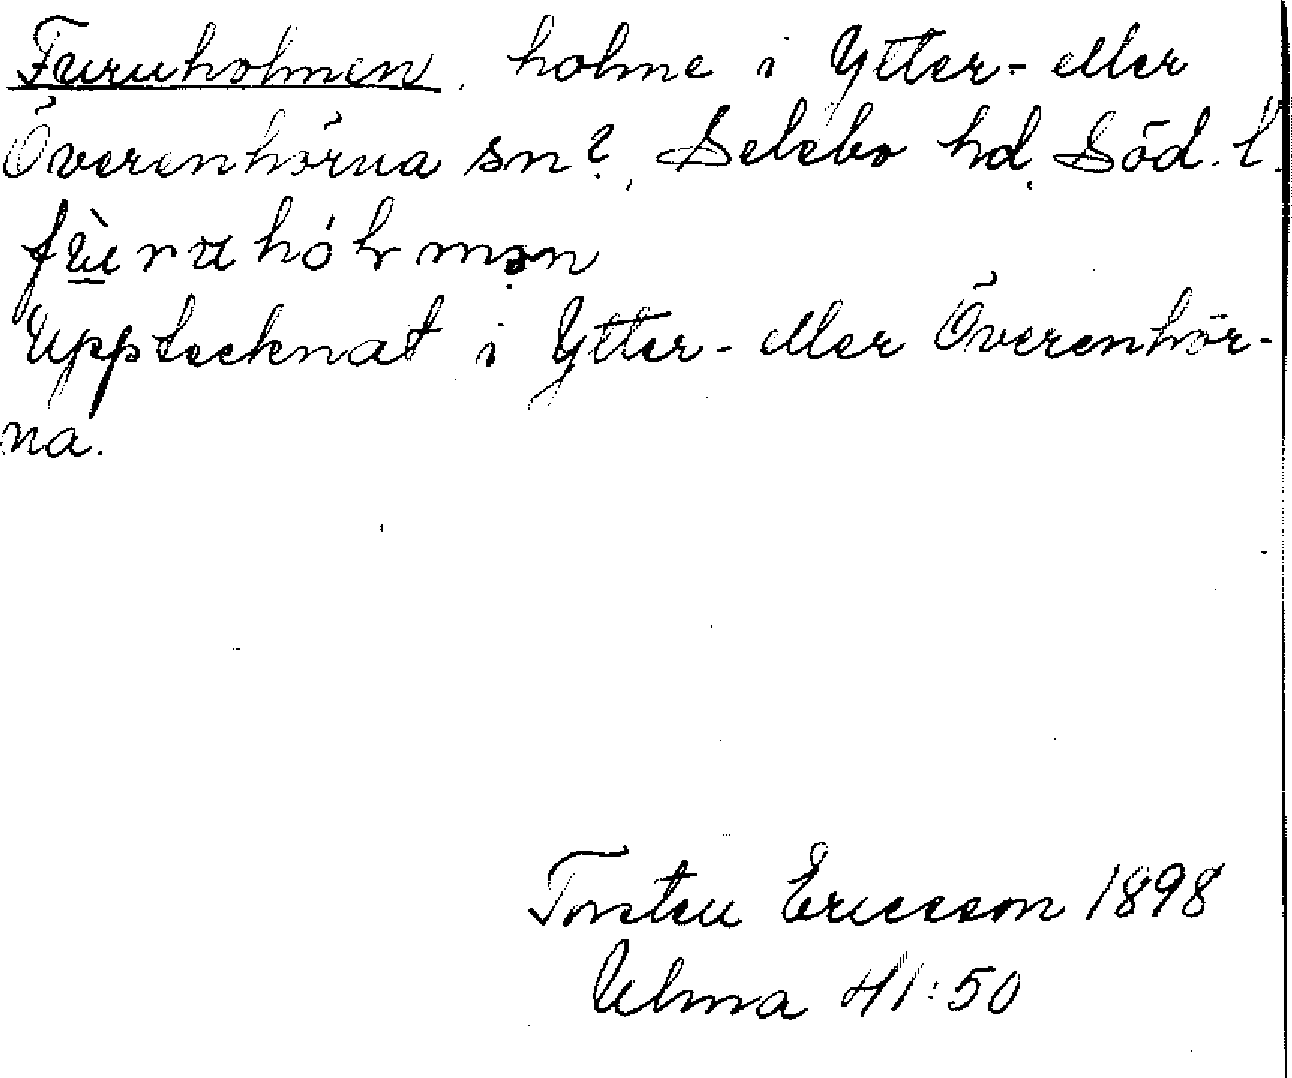 Furuholmen, holme i Ytter- eller
Överenhörna sn?, Selebo hd, Söd. l.
Upptecknat i Ytter- eller Överenhör-
na.
Torsten Ericsson 1898
Ulma 41:50